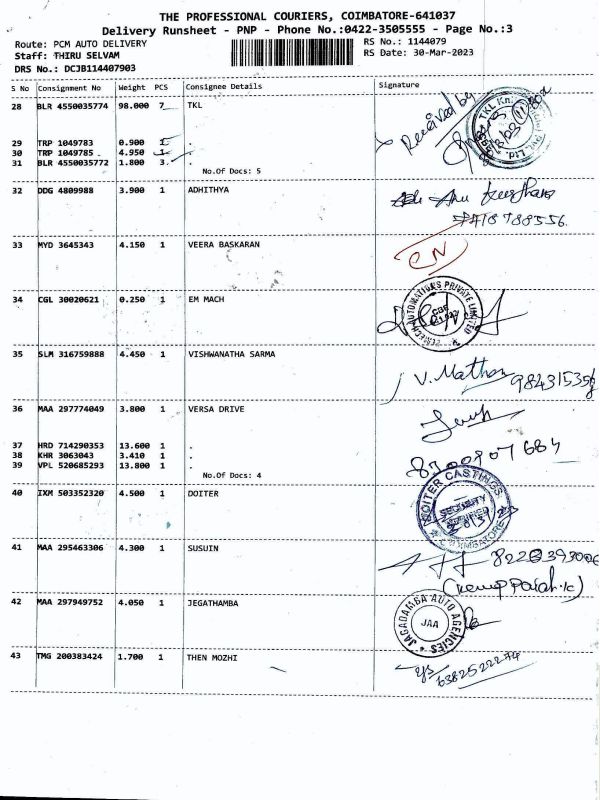 THE PROFESSIONAL COURIERS, COIMBATORE-641037
Delivery Runsheet - PNP - Phone No.:0422-3505555 - Page No.:3
Route: PCM AUTO DELIVERY
RS No.: 1144079
Staff: THIRU SELVAM
RS Date: 30-Mar-2023
DRS No.: DCJB114407903
S No Consignment No Weight PCS Consignee Details Signature
28 BLR 4550035774 98.000 7 TKL
Received by
29 TRP 1049783 0.900 1 .
30 TRP 1049785 4.950 1 .
31 BLR 4550035772 1.800 3 .
No.Of Docs: 5
32 DDG 4809988 3.900 1 ADHITHYA
33 MYD 3645343 4.150 1 VEERA BASKARAN
CN
34 CGL 30020621 0.250 1 EM MACH
35 SLM 316759888 4.450 1 VISHWANATHA SARMA
V. Mathan
36 MAA 297774049 3.800 1 VERSA DRIVE
37 HRD 714290353 13.600 1 .
38 KHR 3063043 3.410 1 .
39 VPL 520685293 13.800 1 .
No.Of Docs: 4
40 IXM 503352320 4.500 1 DOITER
DOITER CASTINGS
SECURITY
COIMBATORE
41 MAA 295463306 4.300 1 SUSUIN
42 MAA 297949752 4.050 1 JEGATHAMBA
JAGADAMBA AUTO AGENCIES
JAA
43 TMG 200383424 1.700 1 THEN MOZHI